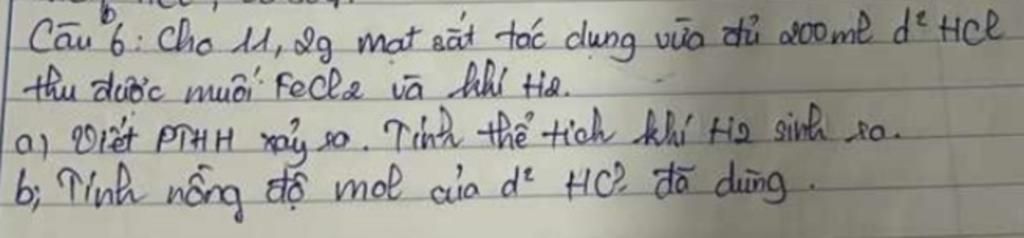 Câu 6: Cho 11,2g mạt sắt tác dụng vừa đủ 200ml d² HCl
thu được muối FeCl2 và khí H2.
a) Viết PTHH xảy ra. Tính thể tích khí H2 sinh ra.
b; Tính nồng độ mol của d² HCl đã dùng.